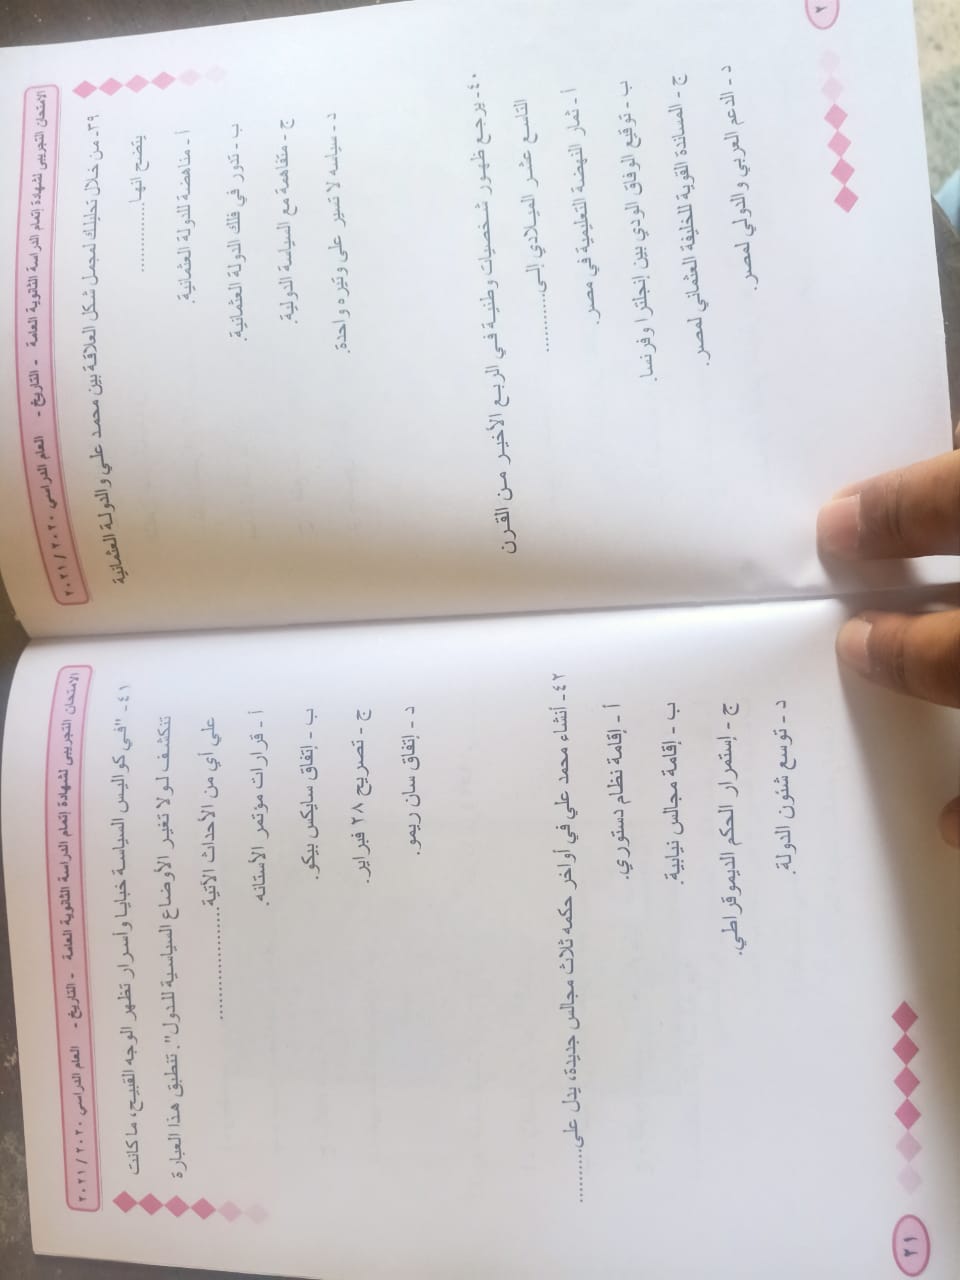 الامتحان التجريبى لشهادة إتمام الدراسة الثانوية العامة - التاريخ - العام الدراسي ٢٠٢٠ / ٢٠٢١
٣٩- من خلال تحليلك لمجمل شكل العلاقة بين محمد علي والدولة العثمانية
يتضح انها............
أ - مناهضة للدولة العثمانية.
ب - تدور في فلك الدولة العثمانية.
ج - متفاهمة مع السياسة الدولية.
د - سياسه لا تسير على وتيره واحدة.
٤٠- يرجع ظهور شخصيات وطنية في الربع الأخير من القرن
التاسع عشر الميلادي إلى..........
أ - ثمار النهضة التعليمية في مصر.
ب - توقيع الوفاق الودي بين إنجلترا وفرنسا.
ج - المساندة القوية للخليفة العثماني لمصر.
د - الدعم العربي والدولي لمصر.
الامتحان التجريبى لشهادة إتمام الدراسة الثانوية العامة - التاريخ - العام الدراسي ٢٠٢٠ / ٢٠٢١
٤١- "في كواليس السياسة خبايا وأسرار تظهر الوجه القبيح، ما كانت
تتكشف لولا تغير الأوضاع السياسية للدول". تنطبق هذا العبارة
علي أي من الأحداث الأتية....................
أ - قرارات مؤتمر الأستانه.
ب - إتفاق سايكس بيكو.
ج - تصريح ٢٨ فبراير.
د - إتفاق سان ريمو.
٤٢- أنشاء محمد علي في أواخر حكمه ثلاث مجالس جديدة، يدل على..........
أ - إقامة نظام دستوري.
ب - إقامة مجالس نيابية.
ج - إستمرار الحكم الديموقراطي.
د - توسع شئون الدولة.
٢١